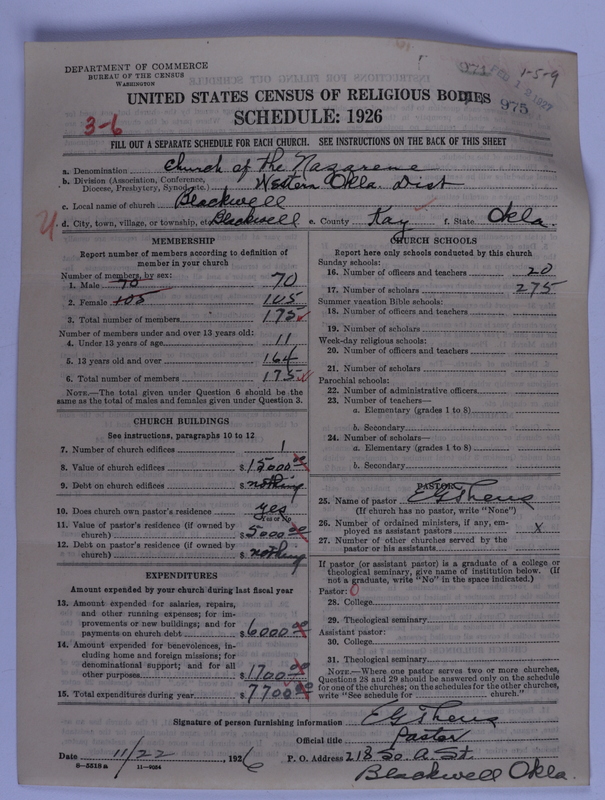 DEPARTMENT OF COMMERCE
BUREAU OF THE CENSUS
WASHINGTON
1-5-9
975
UNITED STATES CENSUS OF RELIGIOUS BODIES
SCHEDULE: 1926
3-6
FILL OUT A SEPARATE SCHEDULE FOR EACH CHURCH. SEE INSTRUCTIONS ON THE BACK OF THIS SHEET
a. Denomination Church of the Nazarene
b. Division (Association, Conference, Diocese, Presbytery, Synod, etc.) Western Okla. Dist
c. Local name of church Blackwell
d. City, town, village, or township, etc. Blackwell e. County Kay f. State Okla.
MEMBERSHIP
Report number of members according to definition of
member in your church
Number of members, by sex:
1. Male 70 70
2. Female 105 105
3. Total number of members 175
Number of members under and over 13 years old:
4. Under 13 years of age 11
5. 13 years old and over 164
6. Total number of members 175
NOTE.—The total given under Question 6 should be the
same as the total of males and females given under Question 3.
CHURCH BUILDINGS
See instructions, paragraphs 10 to 12
7. Number of church edifices 1
8. Value of church edifices $15000.00
9. Debt on church edifices $nothing
10. Does church own pastor's residence yes
(Yes or No)
11. Value of pastor's residence (if owned by
church) $5000.00
12. Debt on pastor's residence (if owned by
church) $nothing
EXPENDITURES
Amount expended by your church during last fiscal year
13. Amount expended for salaries, repairs,
and other running expenses; for im-
provements or new buildings; and for
payments on church debt $6000.00
14. Amount expended for benevolences, in-
cluding home and foreign missions; for
denominational support; and for all
other purposes $1700.00
15. Total expenditures during year $7700.00
CHURCH SCHOOLS
Report here only schools conducted by this church
Sunday schools:
16. Number of officers and teachers 20
17. Number of scholars 275
Summer vacation Bible schools:
18. Number of officers and teachers
19. Number of scholars
Week-day religious schools:
20. Number of officers and teachers
21. Number of scholars
Parochial schools:
22. Number of administrative officers
23. Number of teachers—
a. Elementary (grades 1 to 8)
b. Secondary
24. Number of scholars—
a. Elementary (grades 1 to 8)
b. Secondary
PASTOR
25. Name of pastor
(If church has no pastor, write "None")
26. Number of ordained ministers, if any, em-
ployed as assistant pastors x
27. Number of other churches served by the
pastor or his assistants
If pastor (or assistant pastor) is a graduate of a college or
theological seminary, give name of institution below. (If
not a graduate, write "No" in the space indicated.)
Pastor: 0
28. College
29. Theological seminary
Assistant pastor:
30. College
31. Theological seminary
NOTE.—Where one pastor serves two or more churches,
Questions 28 and 29 should be answered only on the schedule
for one of the churches; on the schedules for the other churches,
write "See schedule for church."
Signature of person furnishing information
Official title Pastor
Date 11/22, 1926 P. O. Address 218 So. A. St.
8—5518a 11—9064
Blackwell Okla.